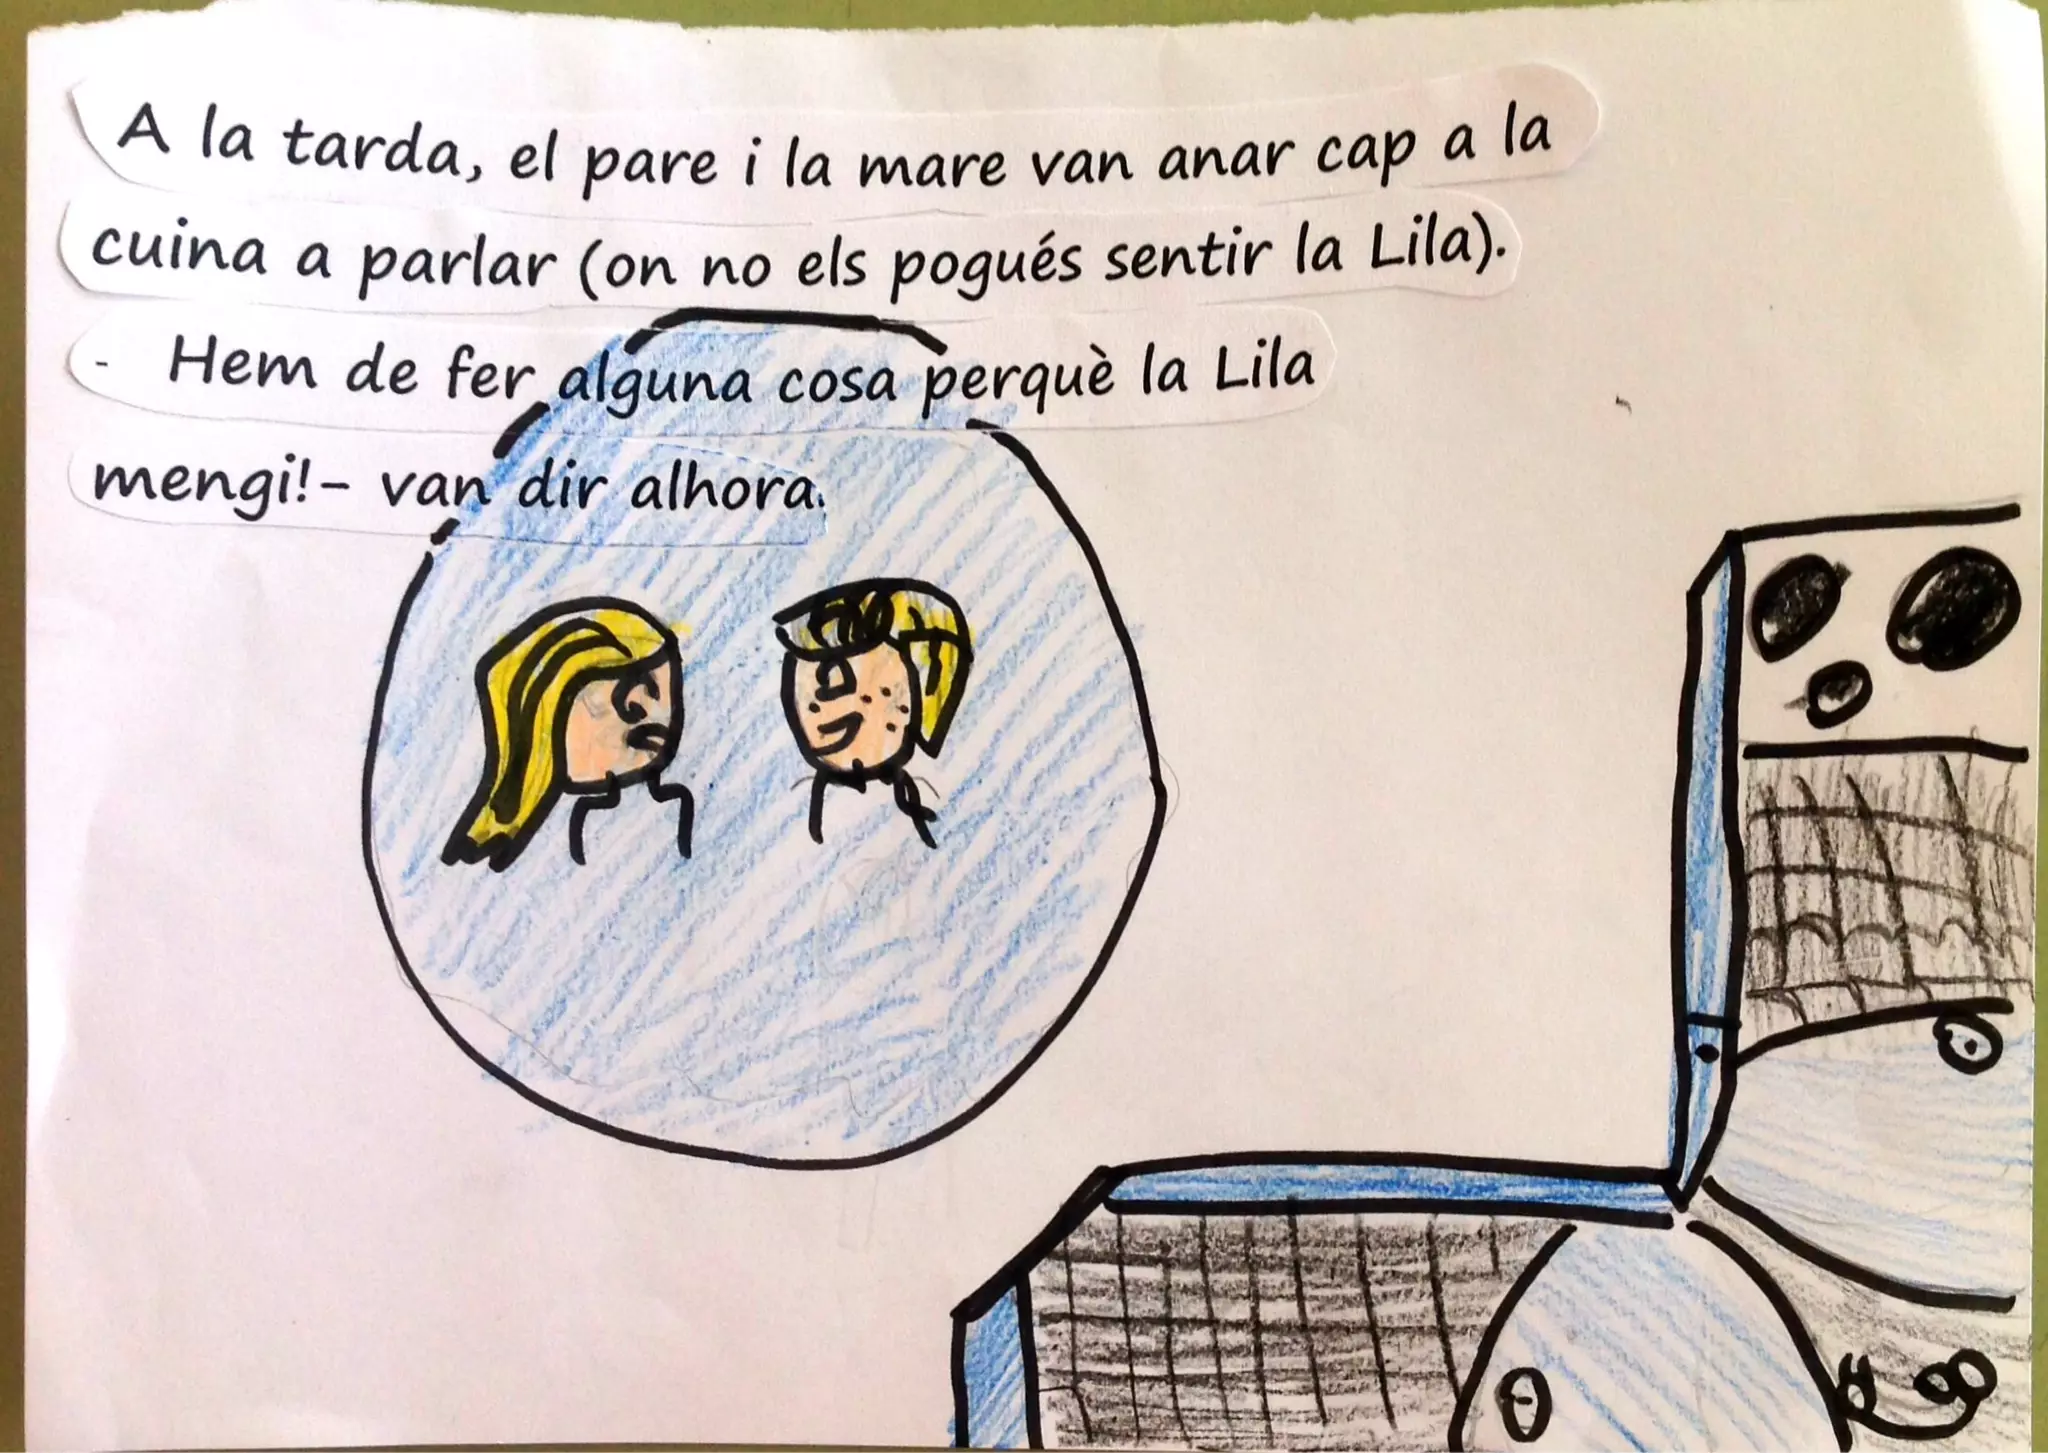 A la tarda, el pare i la mare van anar cap a la
cuina a parlar (on no els pogués sentir la Lila).
- Hem de fer alguna cosa perquè la Lila
mengi!- van dir alhora.